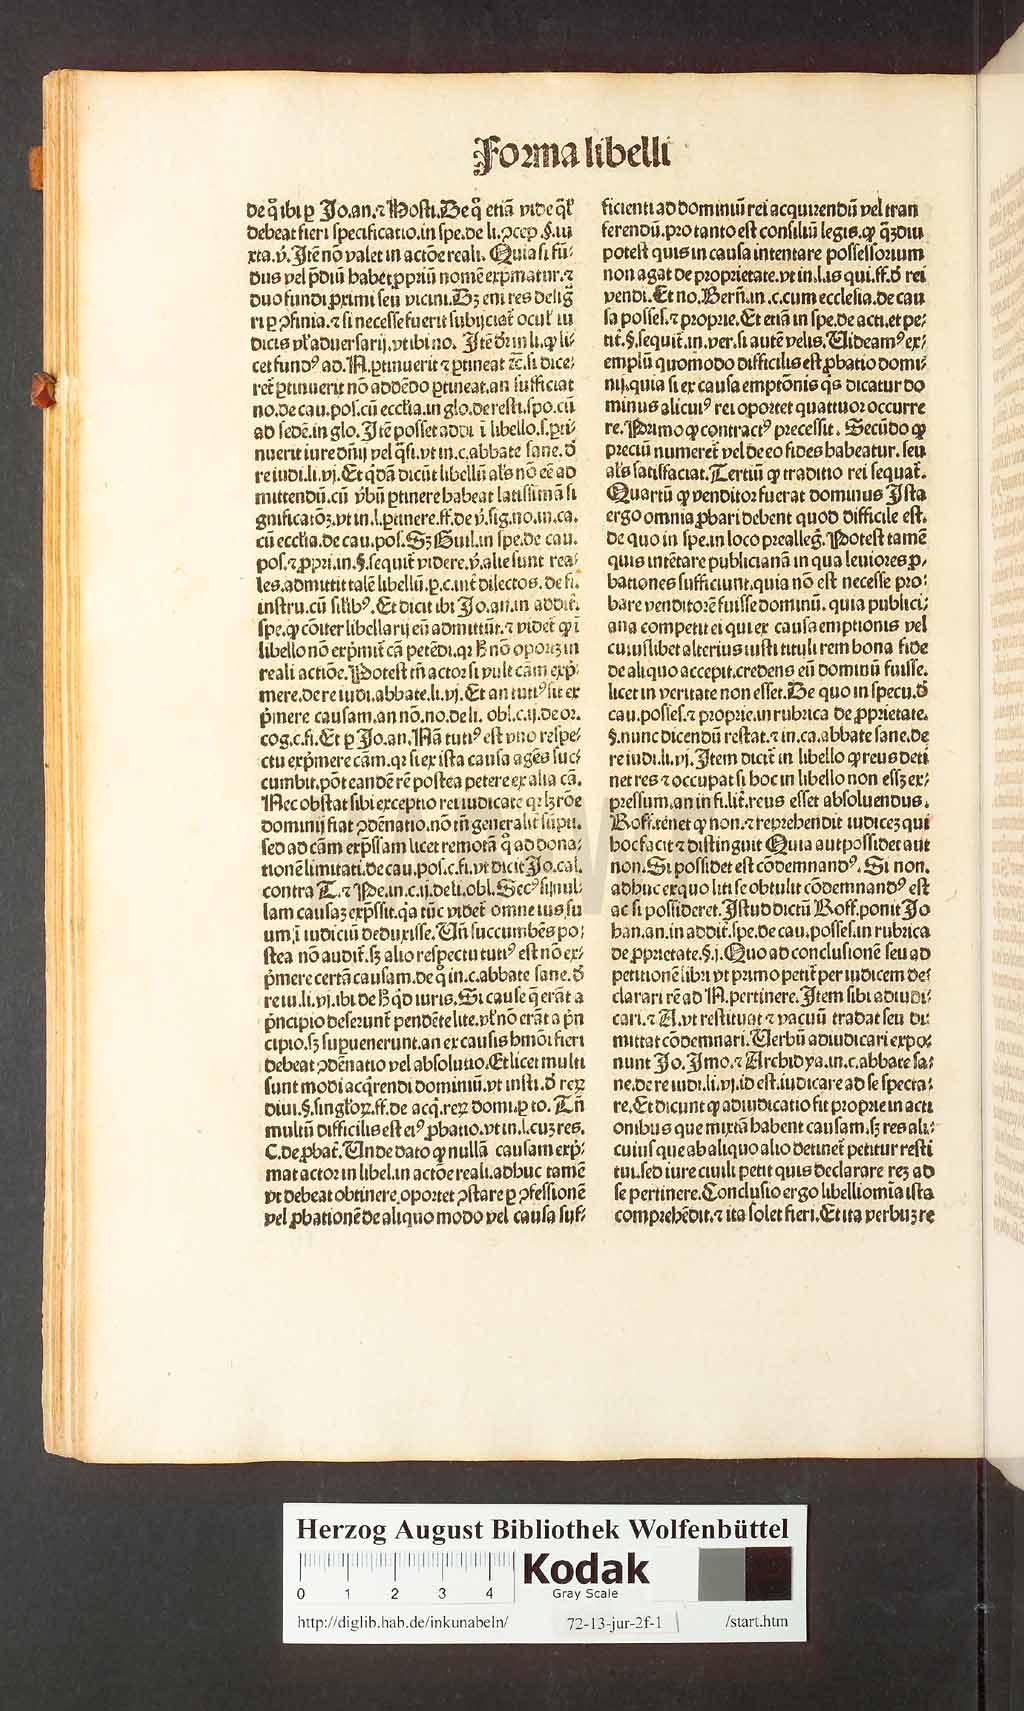 Forma libelli
de q̊ ibi ꝑ Jo.an.⁊ Hosti. De q̊ etiã vide q̃lr̃
debeat fieri specificatio.in spe.de li.ↄcep.§.iu
xta.ꝟ. Itẽ nõ valet in actõe reali. Quia si fũ⸗
dus vel p̃diũ habet ꝓpriũ nomẽ exp̃matur.⁊
duo fundi ꝓximi seu vicini. Dꝫ eni res desig̃
ri ꝑ ↄfinia.⁊ si necesse fuerit subijciat᷑ ocul̕ iu
dicis vl̕ aduersarij.vt ibi no. Itẽ dr̃ in li.ꝙ li⸗
cet fundꝰ ad.N.ꝑtinuerit ⁊ ꝑtineat ⁊c̃.si dice⸗
ret᷑ ꝑtinuerit nõ addẽdo ꝑtineat.an sufficiat
no.de cau.pos.cũ eccl̕ia.in glo.de resti.spo.cũ
ad sedẽ.in glo. Itẽ posset addi ĩ libello.s.ꝑti⸗
nuerit iure dñij vel q̃si.vt in.c.abbate sane.d̕
re iudi.li.vj. Et q̃dã dicũt libellũ al̕s nõ eẽ ad
mittendũ.cũ ꝟbũ ꝑtinere habeat latissimã si
gnificatõꝫ.vt in.l.ꝑtinere.ff.de ꝟ.sig.no.in.ca.
cũ eccl̕ia.de cau.pos. Sꝫ Guil.in spe.de cau.
pos.⁊ ꝓpri.in.§.sequit᷑ videre.ꝟ.alie sunt rea⸗
les.admittit talẽ libellũ.ꝑ.c.int̕ dilectos.de fi.
instru.cũ sil̕ibꝰ. Et dicit ibi Jo.an.in addit᷑.
spe.ꝙ cõiter libellarij eũ admittũt.⁊ videt᷑ ꝙ ĩ
libello nõ exp̃mit᷑ cã petẽdi.qꝛ hͦ nõ oportꝫ in
reali actiõe. Potest tñ actor si vult cãm exp̃⸗
mere.de re iudi.abbate.li.vj. Et an tutiꝰ sit ex
p̃mere causam.an nõ.no.de li. obl.c.ij.de or.
cog.c.fi. Et ꝑ Jo.an. Nã tutiꝰ est vno respe⸗
ctu exp̃mere cãm.qꝛ si ex ista causa agẽs suc⸗
cumbit.põt eandẽ rẽ postea petere ex alia cã.
Nec obstat sibi exceptio rei iudicate qꝛ lꝫ rõe
dominij fiat ↄdẽnatio.nõ tñ generalit᷑ sũpti.
sed ad cãm exp̃ssam licet remotã q̊ ad dona⸗
tionẽ limitati.de cau.pos.c.fi.vt dicit Jo.cal.
contra T.⁊ Pe.in.c.ij.de li.obl. Secꝰ si nul⸗
lam causaꝫ exp̃ssit.q̕a tũc videt᷑ omne ius su
um ĩ iudiciũ deduxisse. Uñ succumbẽs po⸗
stea nõ audit᷑.sꝫ alio respectu tutiꝰ est nõ ex⸗
p̃mere certã causam.de q̊ in.c.abbate sane.d̕
re iu.li.vj.ibi de hͦ q̕d iuris. Si cause q̃ erãt a
p̕ncipio deserunt᷑ pendẽte lite.vl̕ nõ erãt a p̕n
cipio.sꝫ supuenerunt.an ex causis hmõi fieri
debeat ↄdẽnatio vel absolutio. Et licet multi
sunt modi acq̕rendi dominiũ.vt insti.d̕ reꝝ
diui.§.singl̕oꝝ.ff.de acq̕.reꝝ domi.ꝑ to. Tñ
multũ difficilis est eiꝰ ꝓbatio.vt in.l.cuꝫ res.
C.de ꝓbat᷑. Unde dato ꝙ nullã causam exp̃⸗
mat actor in libel.in actõe reali.adhuc tamẽ
vt debeat obtinere oportet ↄstare ꝑ ↄfessionẽ
vel ꝓbationẽ de aliquo modo vel causa suf⸗
ficienti ad dominiũ rei acquirendũ vel tran
ferendũ.pro tanto est consiliũ legis.ꝙ q̃ꝫdiu
potest quis in causa intentare possessorium
non agat de proprietate.vt in.l.is qui.ff.d̕ rei
vendi. Et no. Berñ.in.c.cum ecclesia.de cau
sa posses.⁊ proprie. Et etiã in spe.de acti.et pe⸗
tit᷑.§.sequit᷑.in.ver.si autẽ velis. Uideamꝰ ex⸗
emplũ quomodo difficilis est ꝓbatio domi⸗
nij.quia si ex causa emptõnis q̕s dicatur do
minus alicuiꝰ rei oportet quattuor occurre
re. Primo ꝙ contractꝰ precessit. Secũdo ꝙ
preciũ numeret᷑ vel de eo fides habeatur.seu
al̕s satisfaciat. Tertiũ ꝙ traditio rei sequat᷑.
Quartũ ꝙ venditor fuerat dominus Ista
ergo omnia ꝓbari debent quod difficile est.
de quo in spe.in loco prealleg̃. Potest tamẽ
quis intẽtare publicianã in qua leuiores ꝓ⸗
bationes sufficiunt.quia nõ est necesse pro⸗
bare venditorẽ fuisse dominũ. quia publici⸗
ana competit ei qui ex causa emptionis vel
cuiuslibet alterius iusti tituli rem bona fide
de aliquo accepit.credens eũ dominũ fuisse.
licet in veritate non esset. De quo in specu.d̕
cau.posses.⁊ proprie.in rubrica de ꝓprietate.
§.nunc dicendũ restat.⁊ in.ca.abbate sane.de
re iudi.li.vj. Item dicit᷑ in libello ꝙ reus deti
net res ⁊ occupat si hoc in libello non essꝫ ex⸗
pressum.an in fi.lit᷑.reus esset absoluendus.
Roff.tẽnet ꝙ non.⁊ reprehendit iudiceꝫ qui
hoc facit ⁊ distinguit Quia aut possidet aut
non. Si possidet est cõdemnandꝰ. Si non.
adhuc ex quo liti se obtulit cõdemnandꝰ est
ac si possideret. Istud dictũ Roff.ponit Jo
han.an.in addit᷑.spe.de cau.posses.in rubrica
de ꝓprietate.§.j. Quo ad conclusionẽ seu ad
petitionẽ libri vt primo petit᷑ per iudicem de⸗
clarari rẽ ad N.pertinere. Item sibi adiudi⸗
cari.⁊ A.vt restituat ⁊ vacuũ tradat seu di⸗
mittat cõdemnari. Uerbũ adiudicari expo⸗
nunt Jo. Imo.⁊ Archidya.in.c.abbate sa⸗
ne.de re iudi.li.vj.id est.iudicare ad se specta⸗
re. Et dicunt ꝙ adiudicatio fit proprie in acti
onibus que mixtã habent causam.sꝫ res ali⸗
cuius que ab aliquo alio detinet᷑ petitur resti
tui.sed iure ciuili petit quis declarare reꝫ ad
se pertinere. Conclusio ergo libelli om̃ia ista
comprehẽdit.⁊ ita solet fieri. Et ita verbuꝫ re
Herzog August Bibliothek Wolfenbüttel
0 1 2 3 4
Kodak
Gray Scale
http://diglib.hab.de/inkunabeln/ 72-13-jur-2f-1 /start.htm